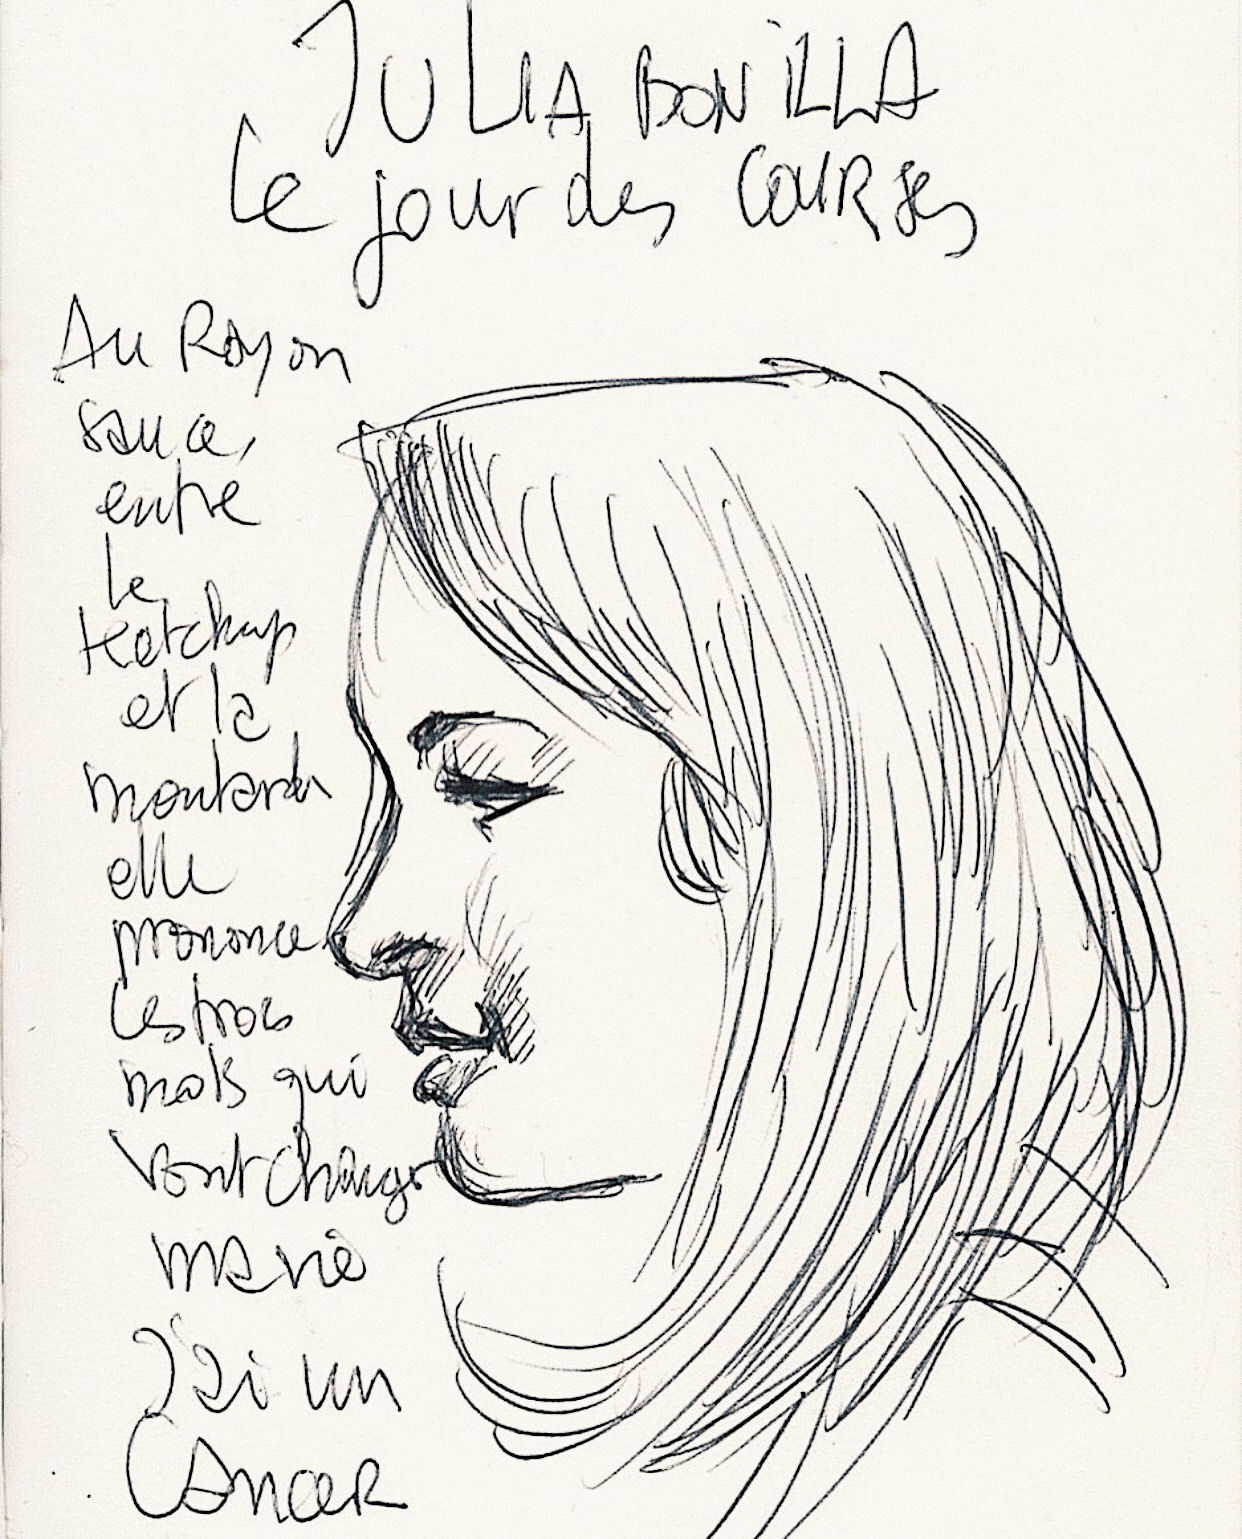 JULIA BONILLA
Le jour des COURSes
Au Rayon
sauce,
entre
le
ketchup
et la
moutarde
elle
prononce
les trois
mots qui
vont changer
ma vie
J'ai un
CANCER